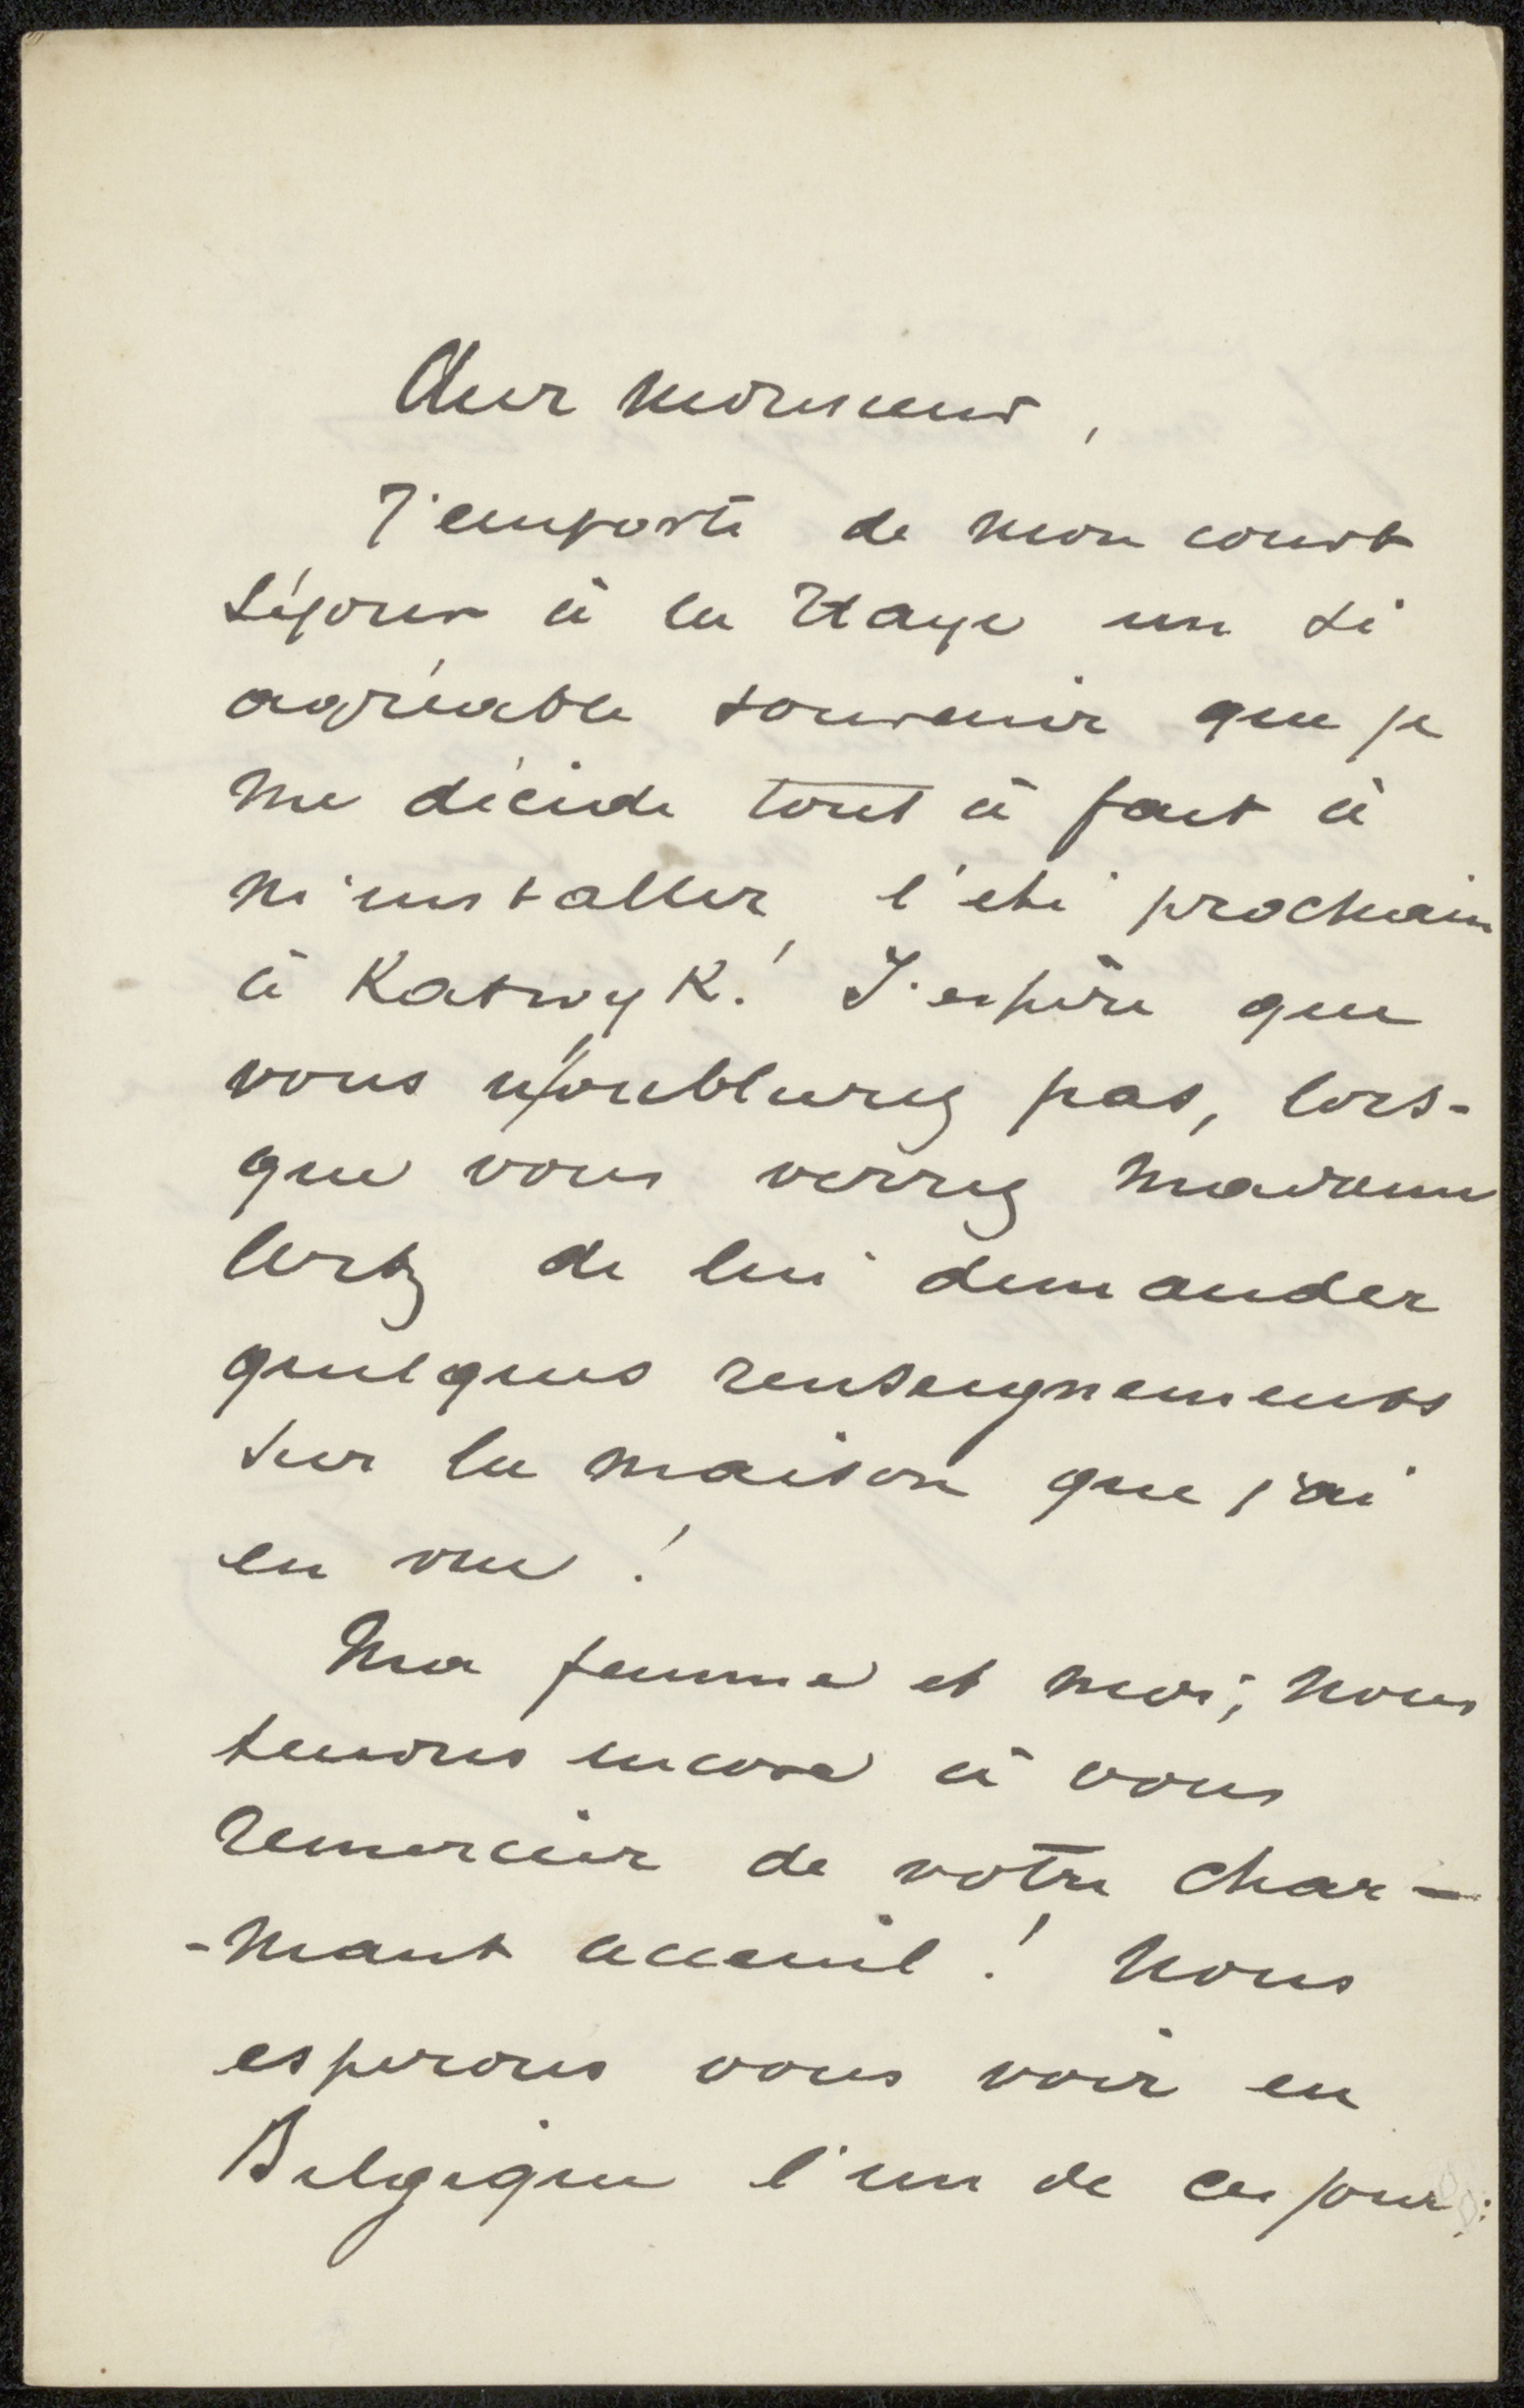 Cher Monsieur,
J'emporte de mon court
séjour à la Haye un si
agréable souvenir que je
me décide tout à fait à
m'installer, l'été prochain
à Katwyk! J'espère que
vous n'oublierez pas, lors-
que vous verrez Madame
de lui demander
quelques renseignements
sur la maison que j'ai
en vue!
Ma femme et moi, nous
tenons encore à vous
remercier de votre char-
-mant acceuil! Nous
esperons vous voir en
Belgique l'un de ces jours: